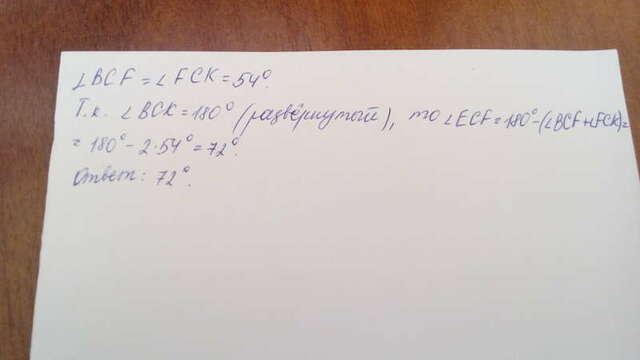 ∠BCF = ∠FCK = 54°.
Т.к. ∠BCK = 180° (развёрнутый), то ∠ECF = 180° - (∠BCF + ∠FCK) =
= 180° - 2·54° = 72°.
Ответ: 72°.